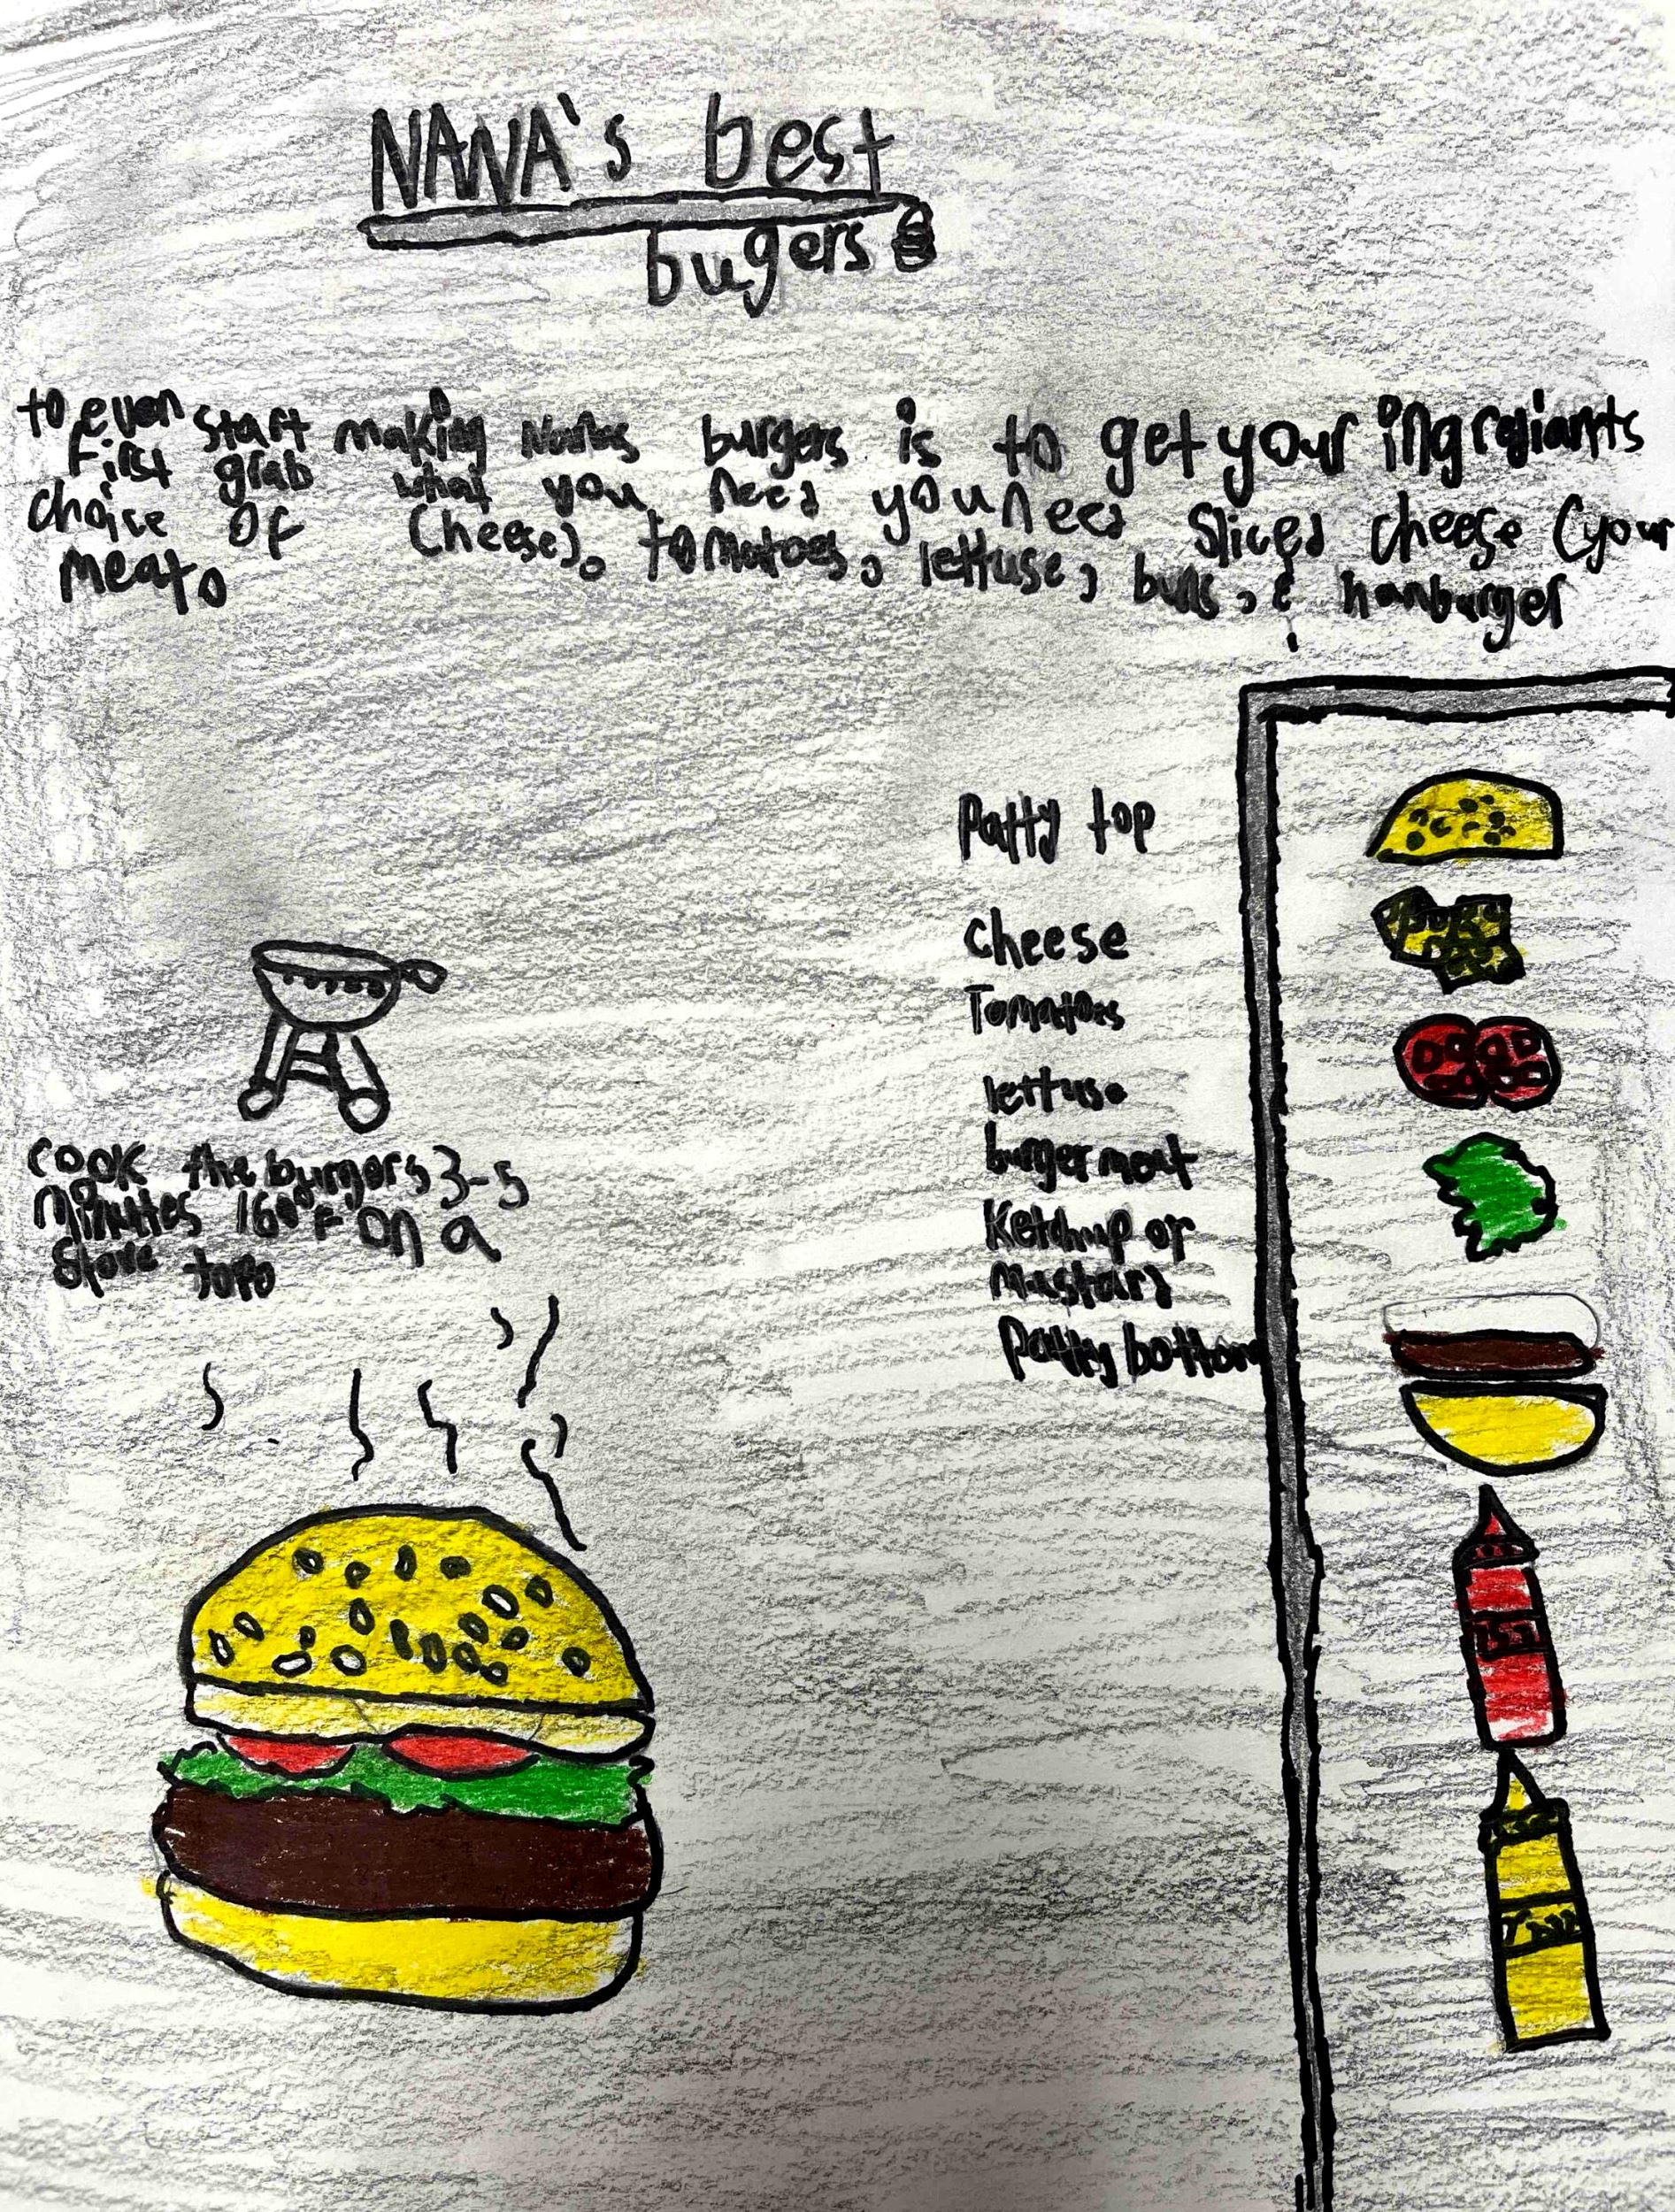 NANA's best
bugers
to even start making Nanas burgers is to get your ingrediants
First grab what you need you need sliced cheese (your
choice of cheese), tomatoes, lettuse, buns, & hamburger
meat.
Patty top
cheese
Tomatoes
lettuse
burger meat
Ketchup or
Mustard
Patty bottom
cook the burgers 3-5
Minutes 160°F on a
Stove top.